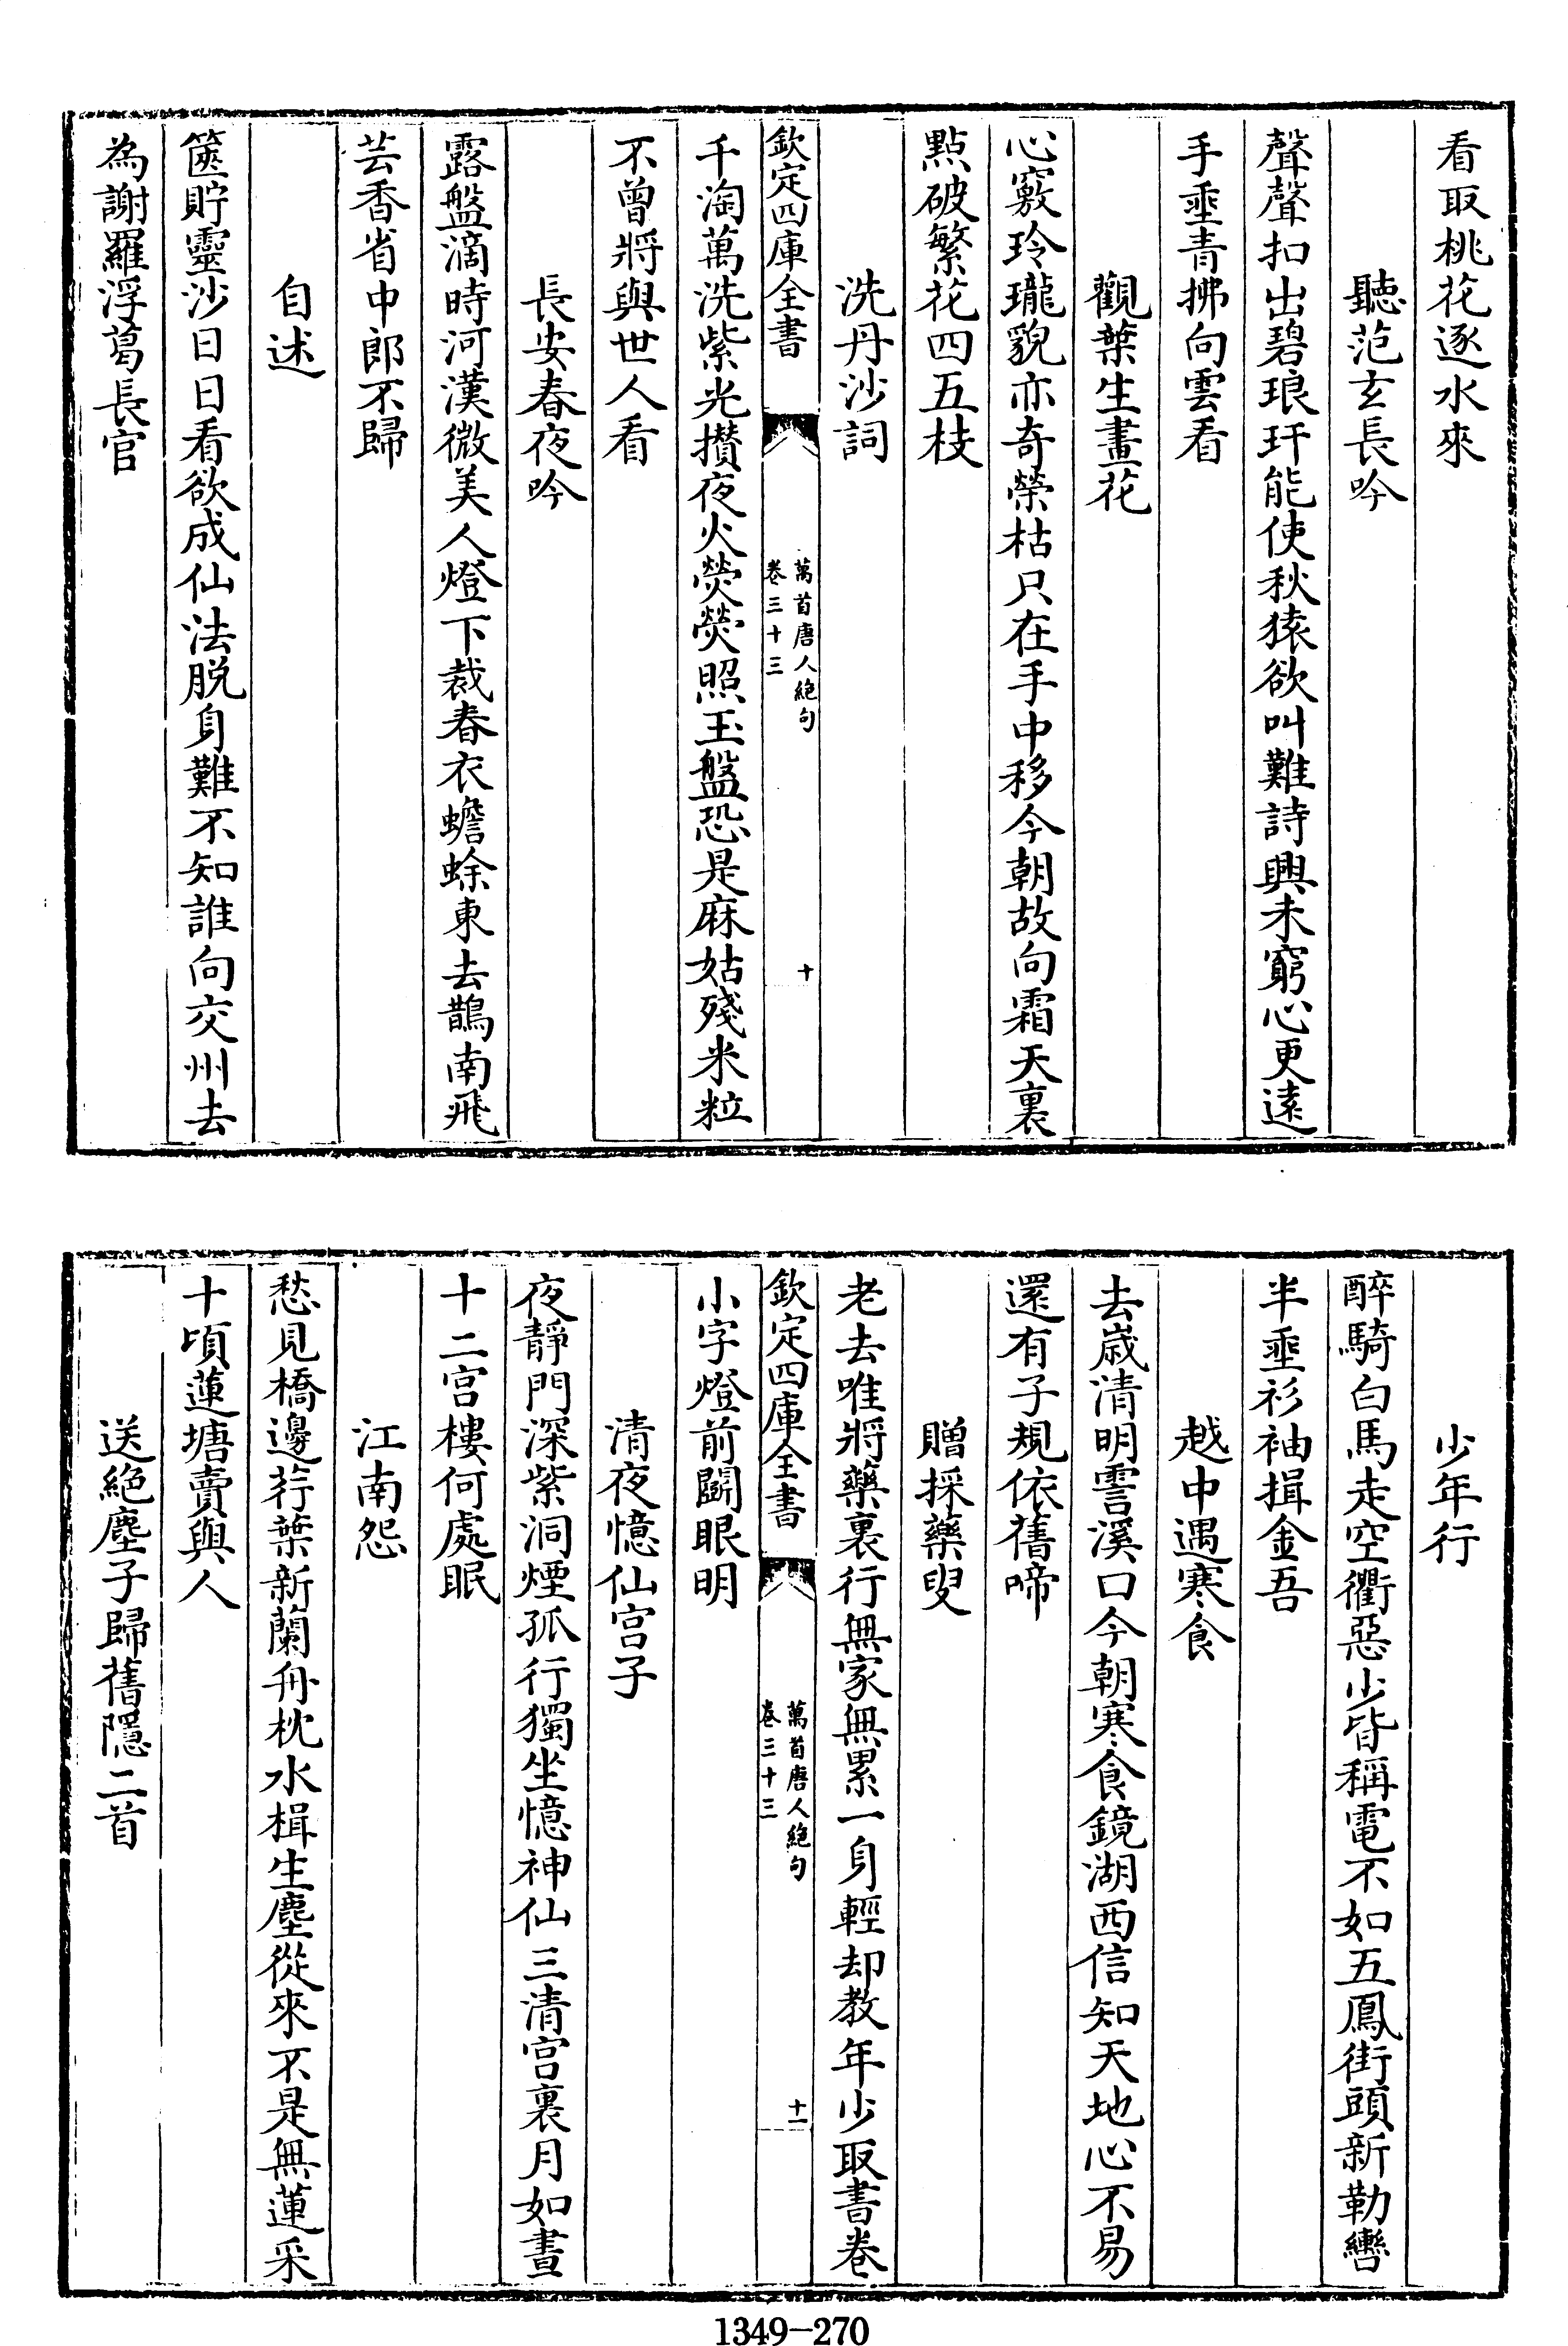 看取桃花逐水來
聽范玄長吟
聲聲扣出碧琅玕能使秋猿欲叫難詩興未窮心更遠
手垂青拂向雲看
觀葉生畫花
心竅玲瓏貌亦奇榮枯只在手中移今朝故向霜天裏
點破繁花四五枝
洗丹沙詞
欽定四庫全書
萬首唐人絶句
卷三十三
十
千淘萬洗紫光攅夜火熒熒照玉盤恐是麻姑殘米粒
不曾將與世人看
長安春夜吟
露盤滴時河漢微美人燈下裁春衣蟾蜍東去鵲南飛
芸香省中郎不歸
自述
篋貯靈沙日日看欲成仙法脱身難不知誰向交州去
為謝羅浮葛長官
少年行
醉騎白馬走空衢惡少皆稱電不如五鳳街頭新勒轡
半垂衫袖揖金吾
越中遇寒食
去歲清明霅溪口今朝寒食鏡湖西信知天地心不易
還有子規依舊啼
贈採藥叟
老去唯將藥裏行無家無累一身輕却教年少取書卷
欽定四庫全書
萬首唐人絶句
卷三十三
十一
小字燈前鬬眼明
清夜憶仙宮子
夜靜門深紫洞煙孤行獨坐憶神仙三清宮裏月如晝
十二宮樓何處眠
江南怨
愁見橋邊荇葉新蘭舟枕水楫生塵從來不是無蓮采
十頃蓮塘賣與人
送絶塵子歸舊隱二首
1349-270